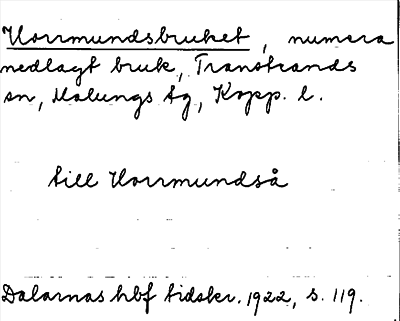 Horrmundsbruket, numera
nedlagt bruk, Transtrands
sn, Malungs tg, Kopp. l.
till Horrmundså
Dalarnas hbf tidskr. 1922, s. 119.